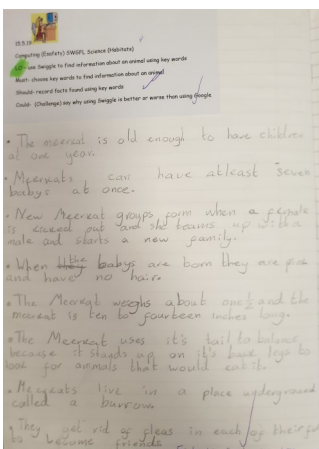 15.5.19
Computing (Esafety) SWGFL Science (Habitats)
LO- use Swiggle to find information about an animal using key words
Must- choose key words to find information about an animal
Should- record facts found using key words
Could- (Challenge) say why using Swiggle is better or worse than using Google
• The meerkat is old enough to have children
at one year.
• Meerkats can have atleast seven
babys at once.
• New Meerkat groups form when a female
is out and she teams up with a
male and starts a new family.
• When they the babys are born they are pink
and have no hair.
• The Meerkat weighs about one ½ and the
meerkat is ten to fourteen inches long.
• The Meerkat uses it's tail to balance
because it stands up on it's back legs to
look for animals that would eat it.
• Meerkats live in a place underground
called a burrow.
• They get rid of fleas in each of their fur
to become friends